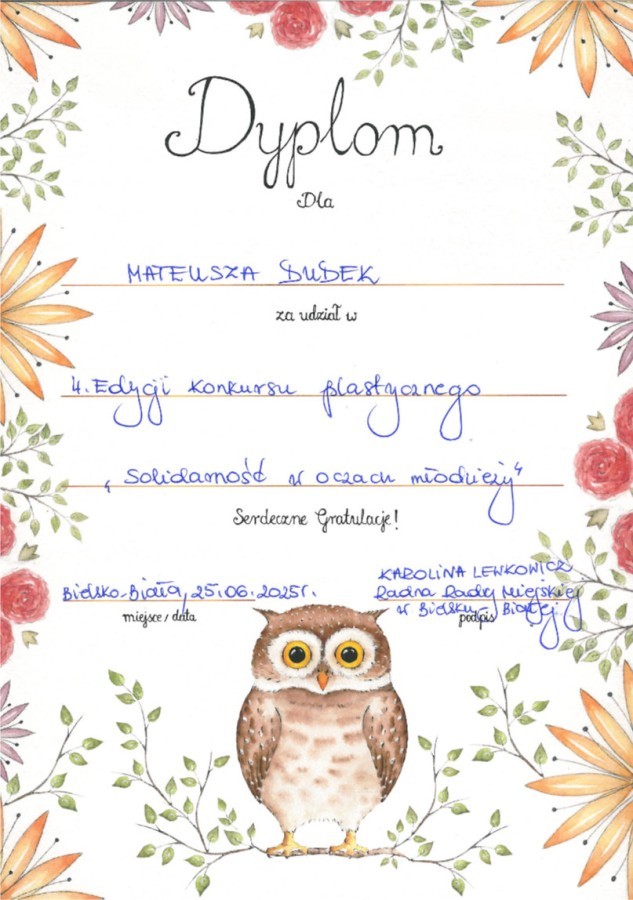 Dyplom
Dla
MATEUSZA DUDEK
za udział w
4. Edycji konkursu plastycznego
„Solidarność w oczach młodzieży"
Serdeczne Gratulacje!
KAROLINA LENKOWICZ
Bielsko-Biała, 25.06.2025r. Radna Rady Miejskiej
w Bielsku-Białej
miejsce / data podpis